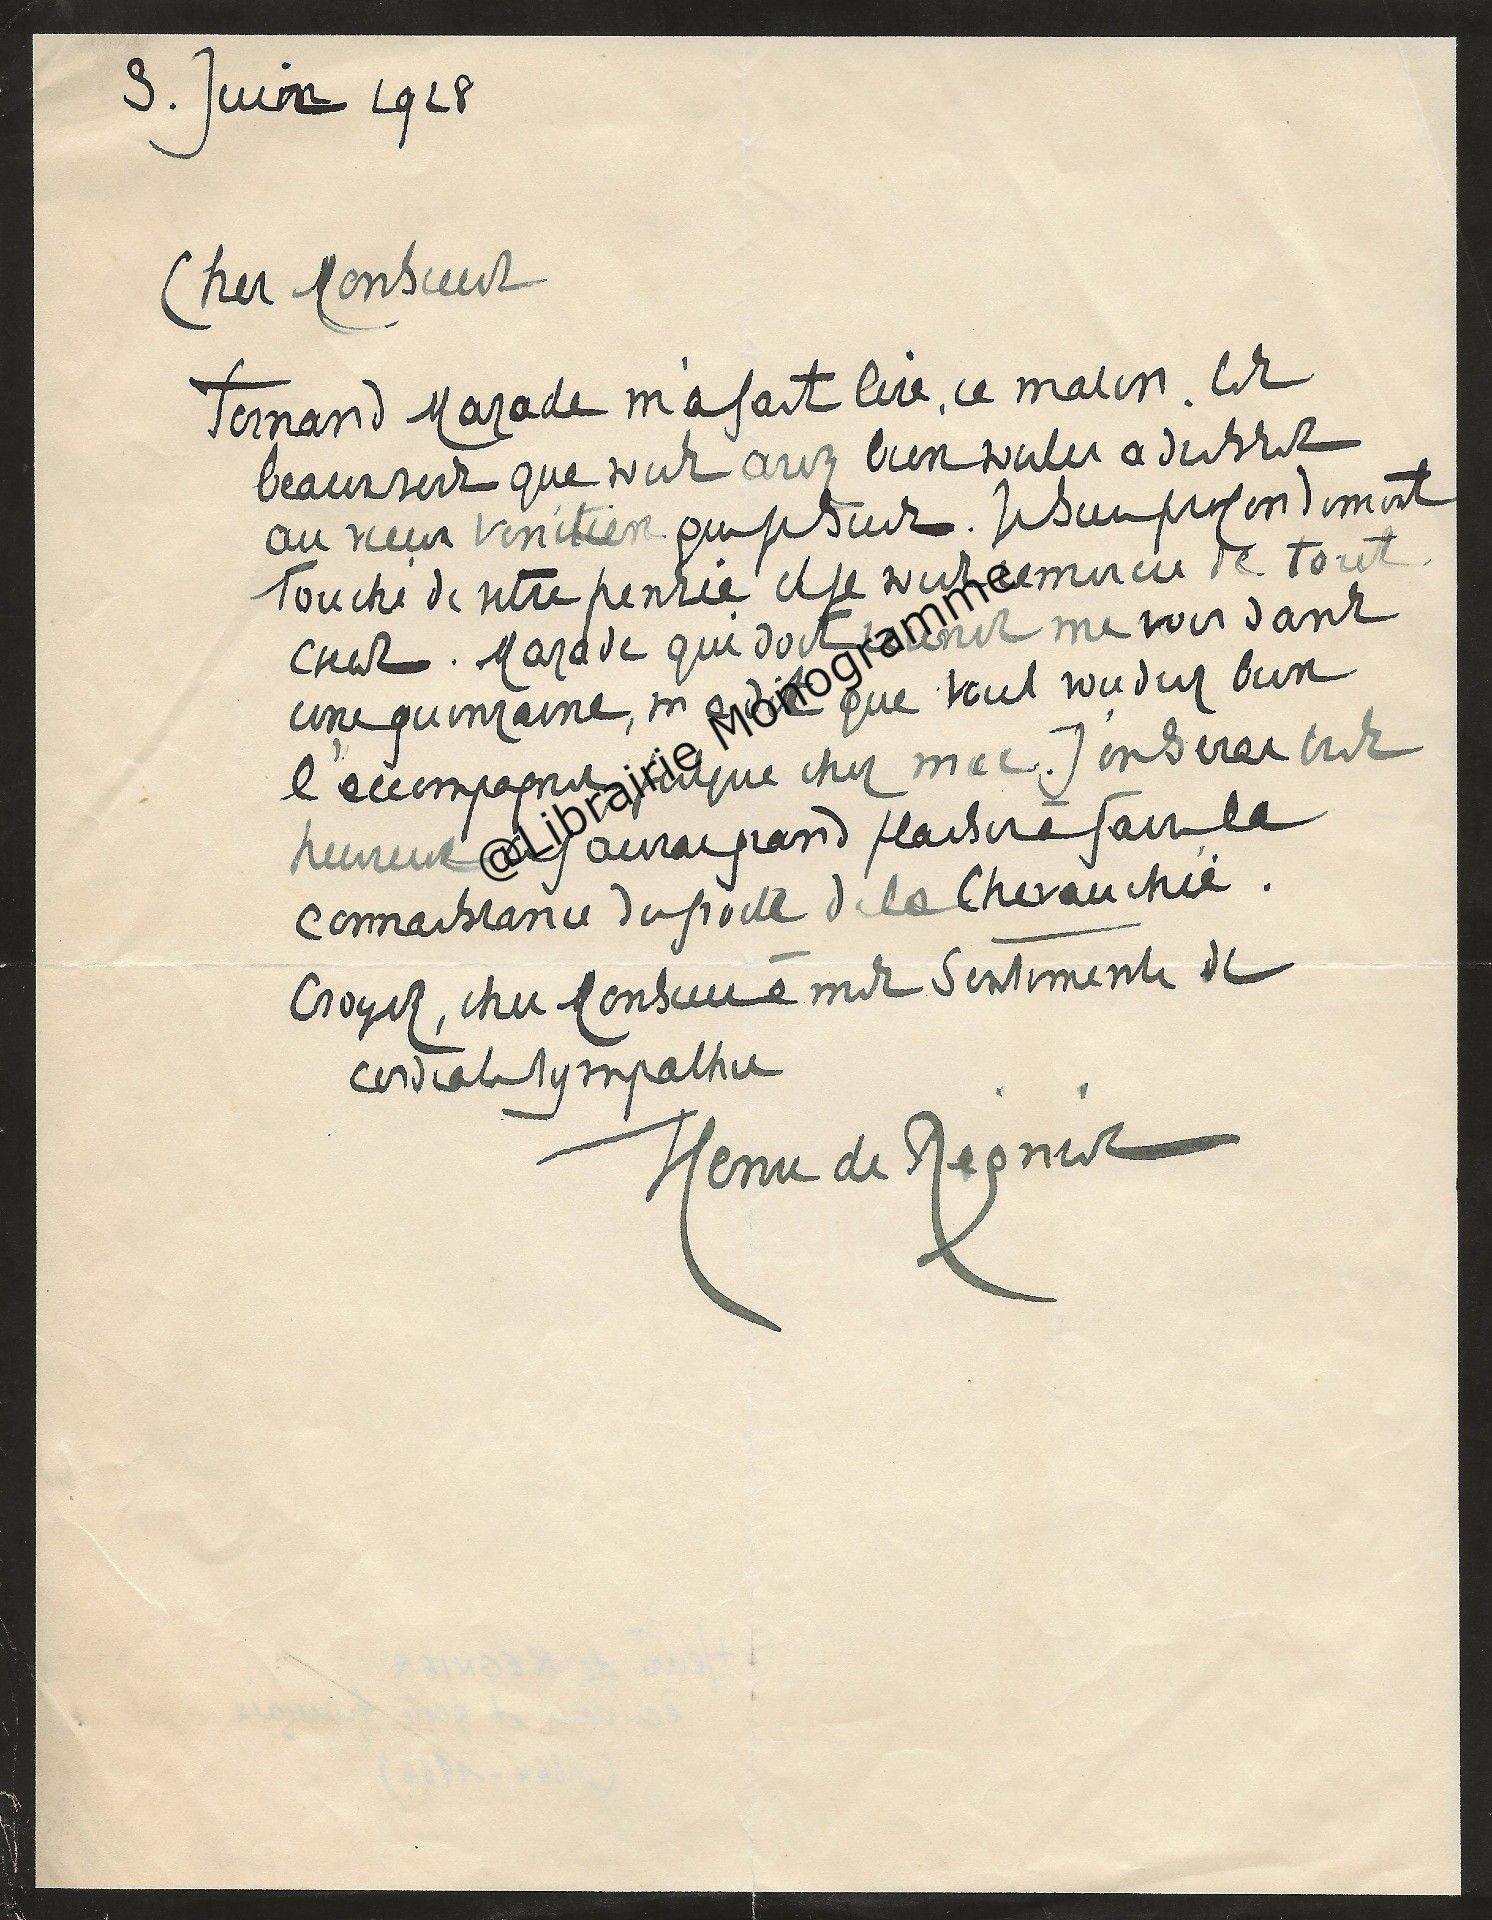 3. Juin 1928
Cher Monsieur
Fernand Mazade m'a fait lire, ce matin, les
beaux vers que vous avez bien voulu adresser
au vieux vénitien que je suis. Je suis profondément
touché de votre pensée et je vous remercie de tout
cœur. Mazade qui doit venir me voir dans
une quinzaine, m'a dit que vous voudrez bien
l'accompagner jusque chez moi. J'en serai très
heureux et j'aurai grand plaisir à faire la
connaissance du poète de la Chevauchée.
Croyez, cher Monsieur à mes sentiments de
cordiale sympathie
Henri de Régnier
@Librairie Monogramme
Henri de REGNIER
écrivain et poète français
(1864-1936)